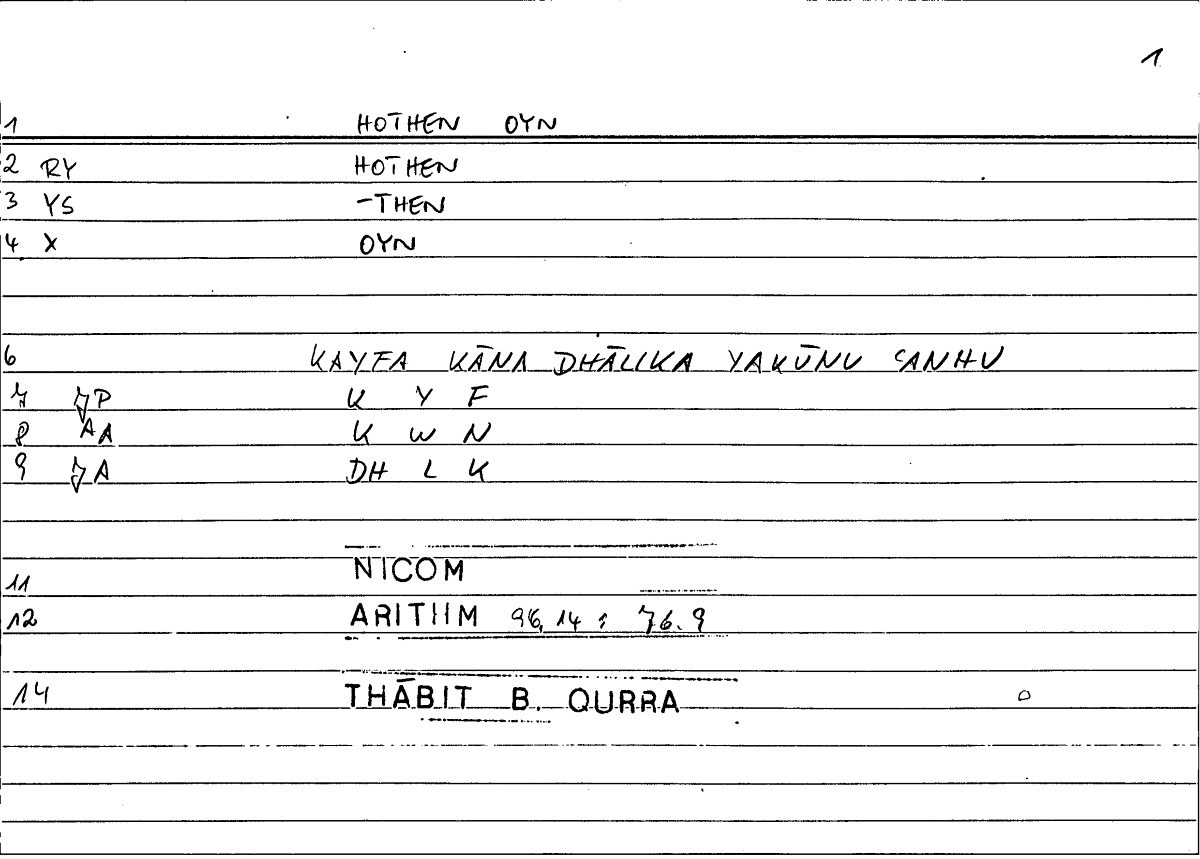 1
1 HOTHEN OYN
2 RY HOTHEN
3 YS -THEN
4 X OYN
6 KAYFA KĀNA DHĀLIKA YAKŪNU ʿANHU
7 P K Y F
8 AA K W N
9 A DH L K
11 NICOM
12 ARITHM 96,14 : 76.9
14 THĀBIT B. QURRA